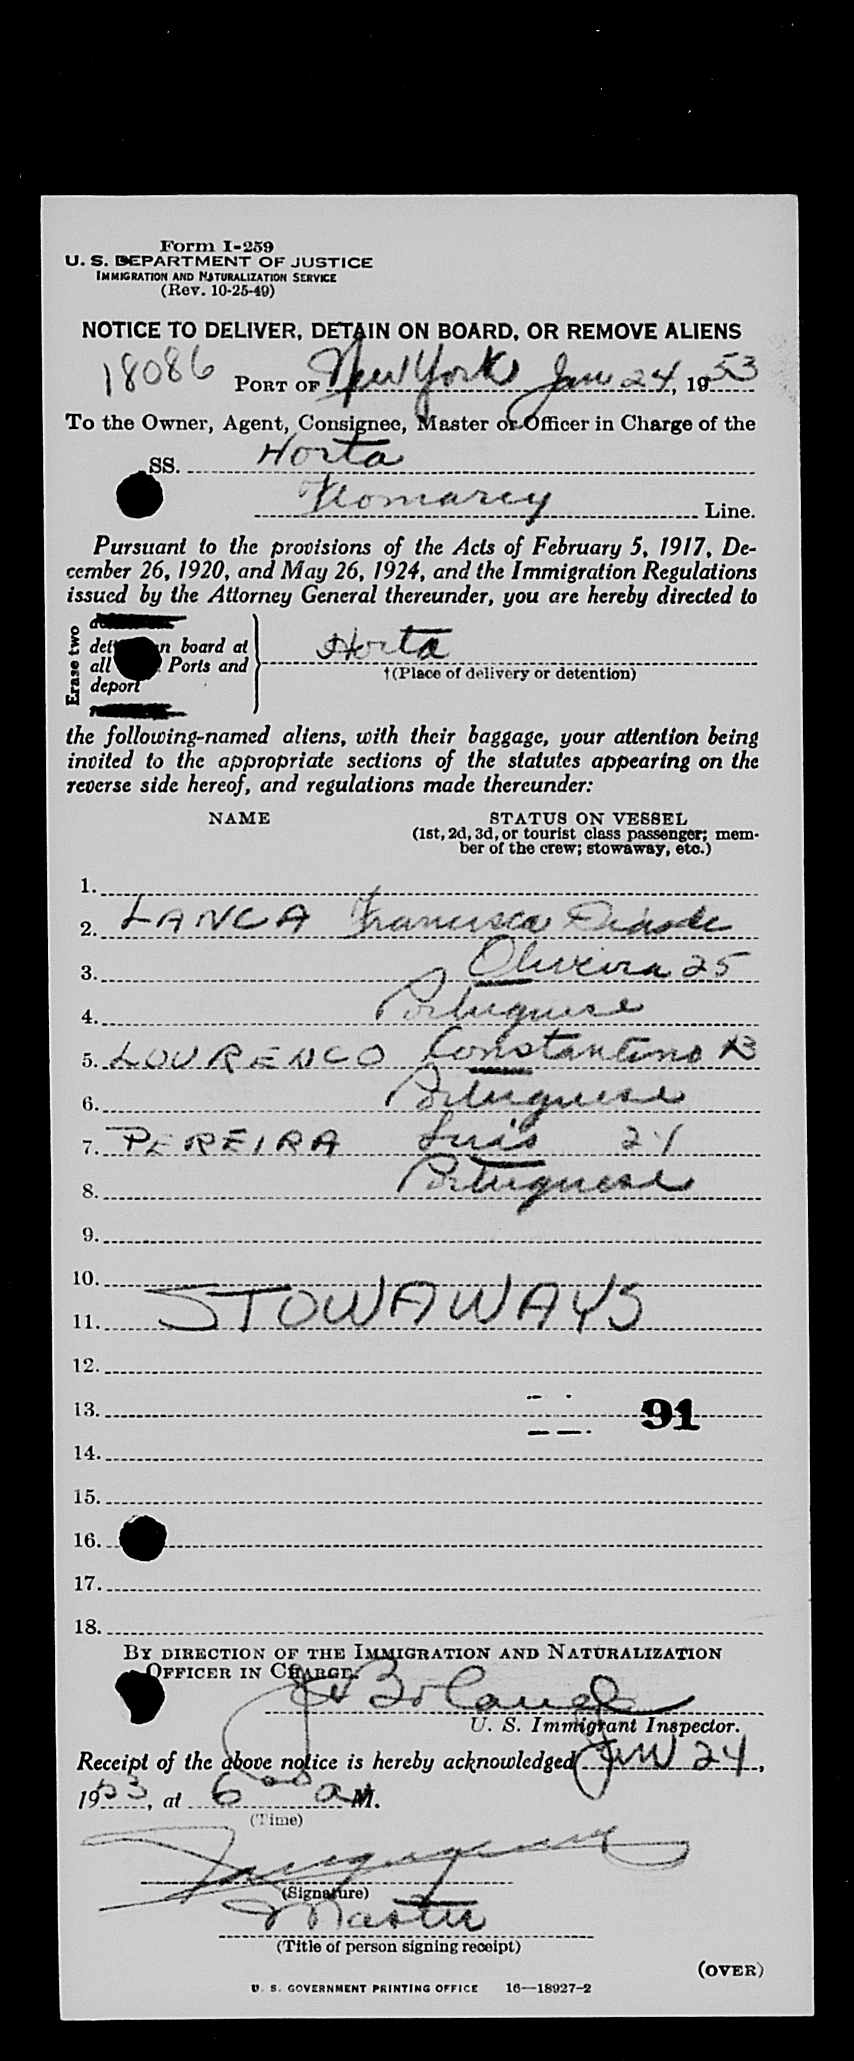 Form I-259
U. S. DEPARTMENT OF JUSTICE
IMMIGRATION AND NATURALIZATION SERVICE
(Rev. 10-25-49)
NOTICE TO DELIVER, DETAIN ON BOARD, OR REMOVE ALIENS
18086 PORT OF New York Jan 24, 1953
To the Owner, Agent, Consignee, Master or Officer in Charge of the
SS. Horta
Line.
Pursuant to the provisions of the Acts of February 5, 1917, De-
cember 26, 1920, and May 26, 1924, and the Immigration Regulations
issued by the Attorney General thereunder, you are hereby directed to
Erase two
board at Horta
all Ports and
†(Place of delivery or detention)
deport
the following-named aliens, with their baggage, your attention being
invited to the appropriate sections of the statutes appearing on the
reverse side hereof, and regulations made thereunder:
NAME STATUS ON VESSEL
(1st, 2d, 3d, or tourist class passenger; mem-
ber of the crew; stowaway, etc.)
1.
2. LANCA Francisco
3. Oliveira 25
4. Portuguese
5. LOURENCO Constantino
6. Portuguese
7. PEREIRA Luis 24
8. Portuguese
9.
10.
11. STOWAWAYS
12.
13. 91
14.
15.
16.
17.
18.
BY DIRECTION OF THE IMMIGRATION AND NATURALIZATION
OFFICER IN CHARGE.
Boland
U. S. Immigrant Inspector.
Receipt of the above notice is hereby acknowledged Jan 24,
1953, at 6 00 a M.
(Time)
(Signature)
Master
(Title of person signing receipt)
(OVER)
U. S. GOVERNMENT PRINTING OFFICE 16—18927-2